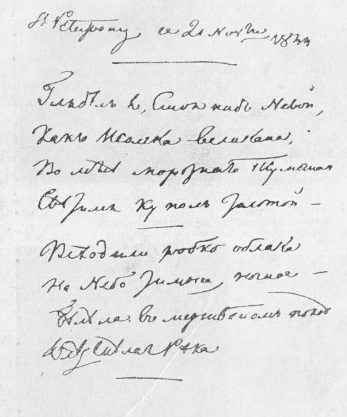 St Petersbourg, ce 21 Novbre 1844
Глядѣлъ я, стоя надъ Невой,
Какъ Исаака великана,
Во мглѣ морознаго тумана
Свѣтился куполъ золотой –
Всходили робко облака
На небо зимнее, ночное –
Бѣлѣла въ мертвенномъ покоѣ
Оледенѣлая рѣка